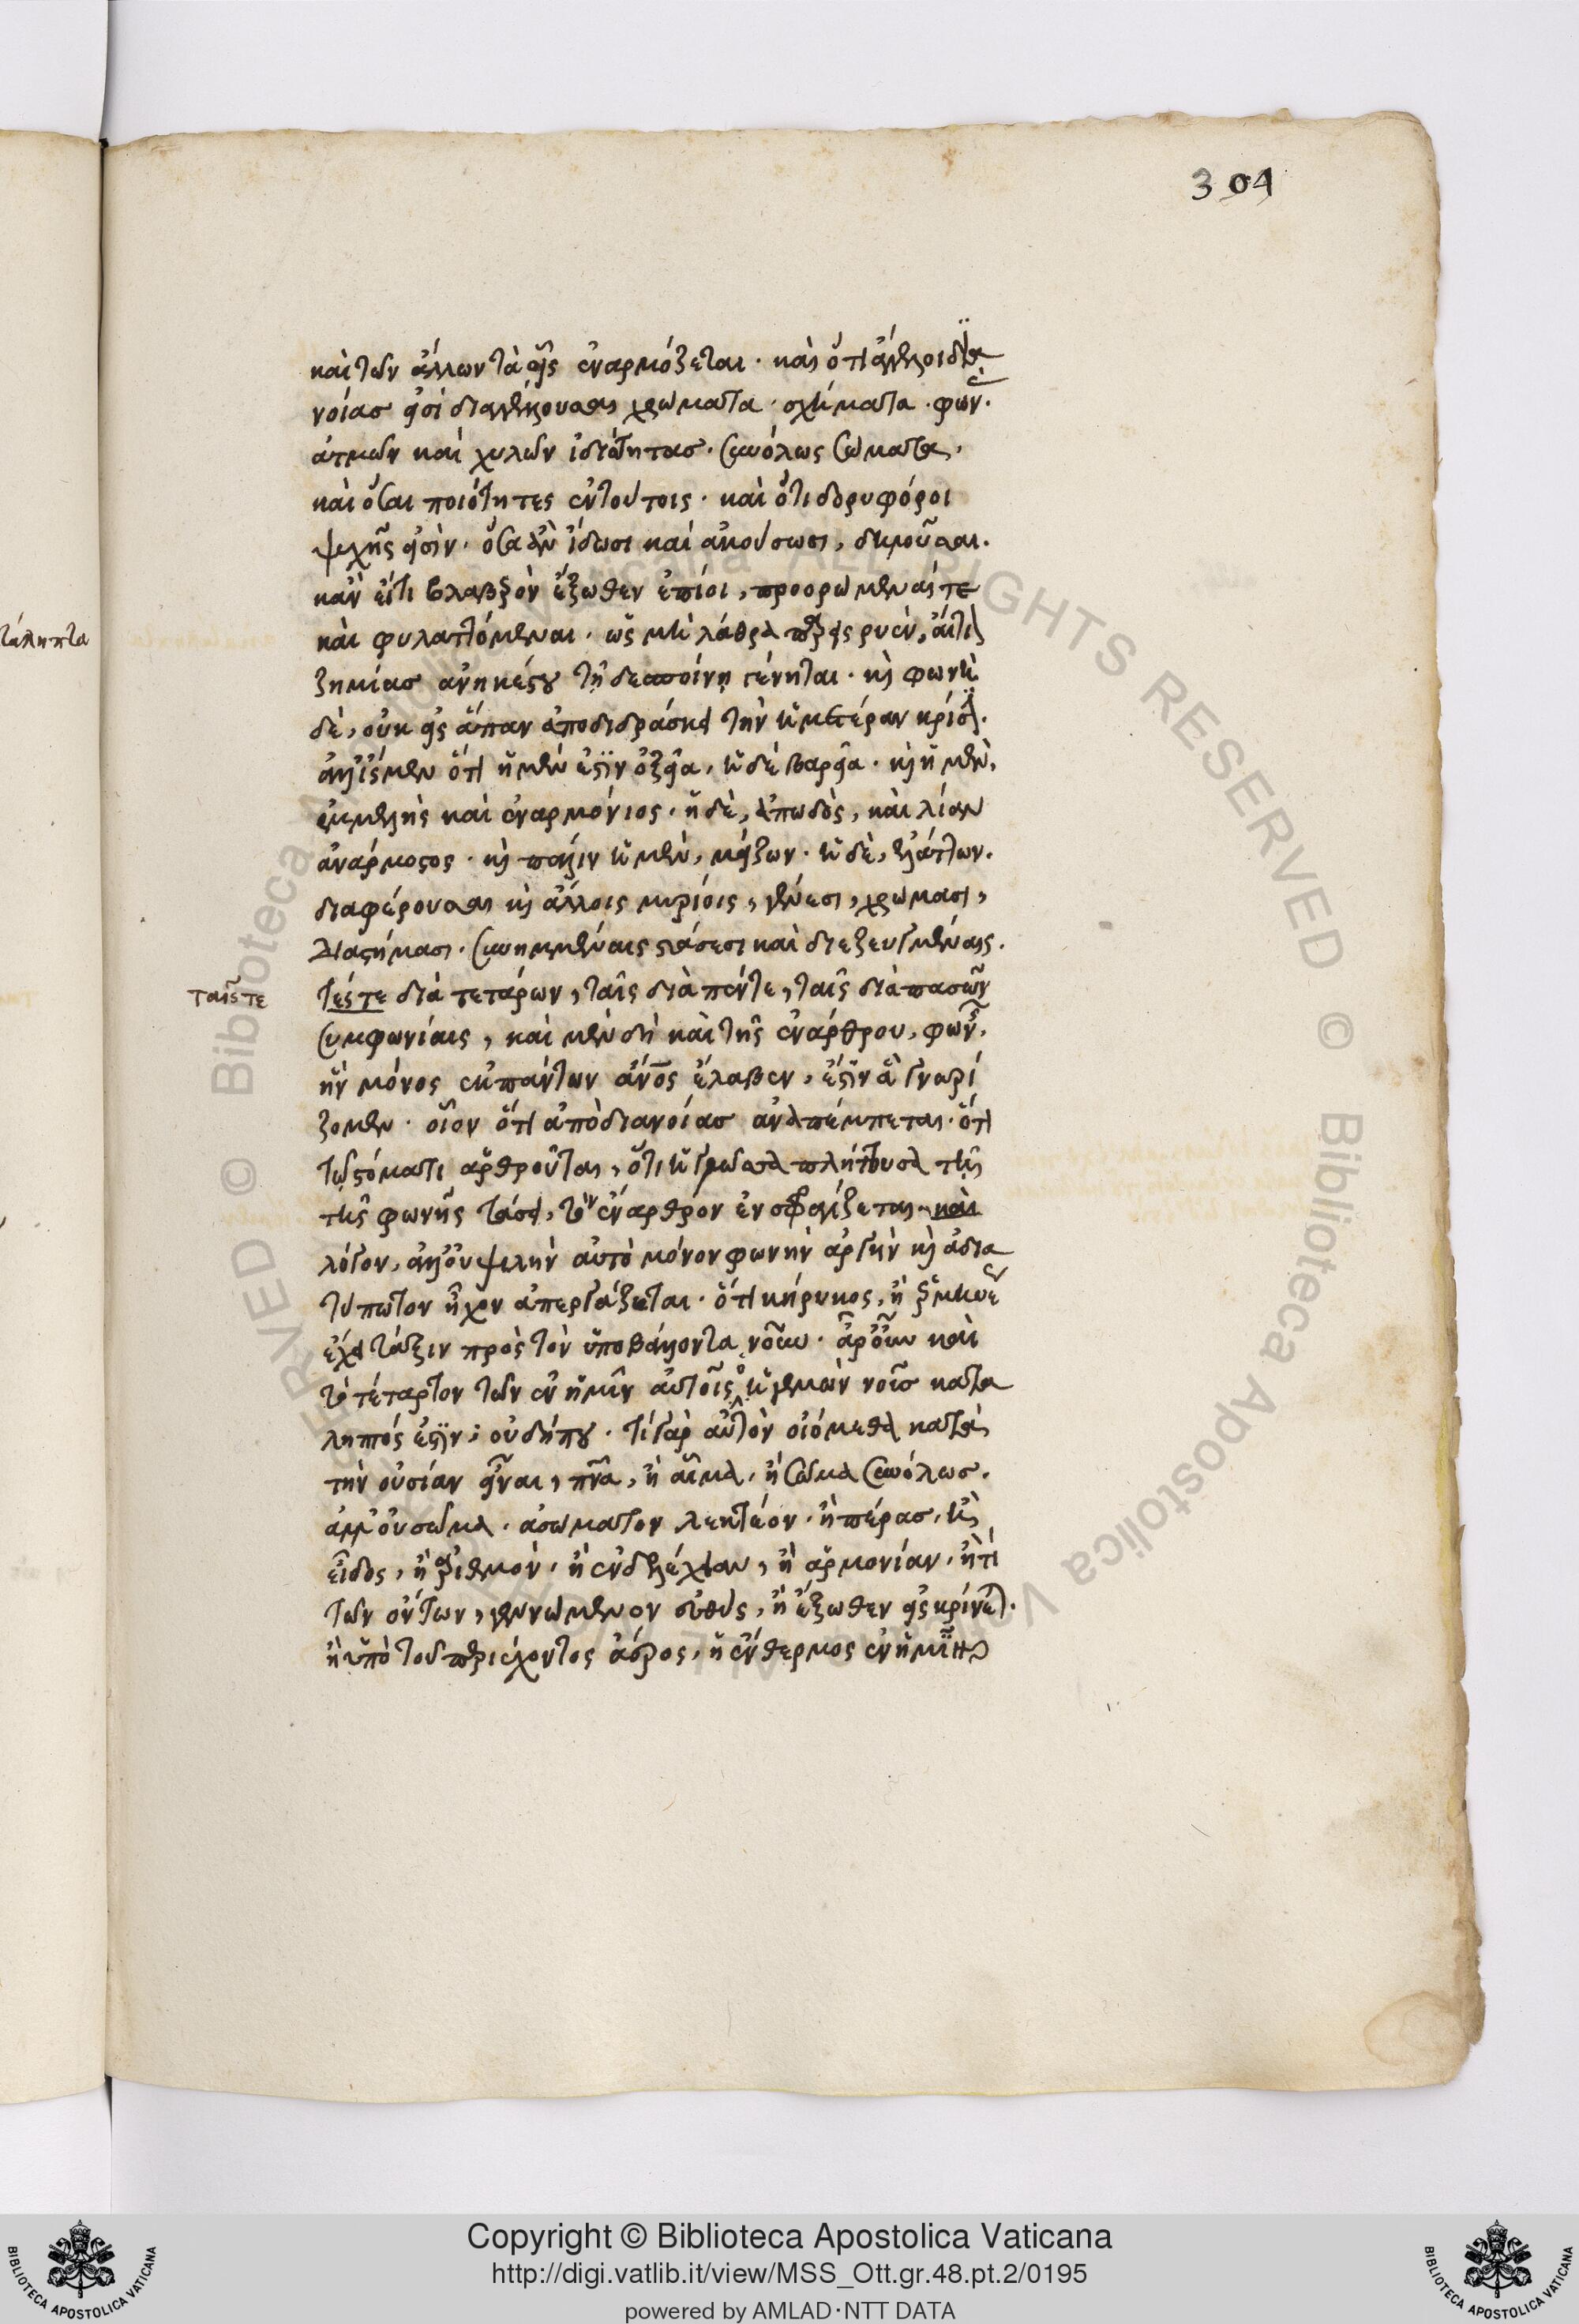 304
καὶ τῶν ἄλλων τὰ εἰς ἐναρμόζεται. καὶ ὅτι ἄγγελοι δια
νοίας εἰσὶ διαγγέλλουσαι χρώματα. σχήματα. φων.
ἀτμῶν καὶ χυλῶν ἰδιότητας. συνόλως σώματα,
καὶ ὅσαι ποιότητες ἐν τούτοις. καὶ ὅτι δορυφόροι
ψυχῆς εἰσὶν. ὅσα ἂν ἴδωσι καὶ ἀκούσωσι, δηλοῦσαι.
κἂν εἴ τι βλαβερὸν ἔξωθεν ἐπίοι, προορώμεναί τε
καὶ φυλαττόμεναι. ὡς μὴ λάθρα παρεισρυὲν, αἴτι
ζημίας ἀνηκέστου τῇ δεσποίνῃ γένηται. καὶ φωνὴ
δὲ, οὐκ εἰς ἅπαν ἀποδιδράσκει τὴν ἡμετέραν κρίσ.
ἀλλ' ἴσμεν ὅτι ἡ μέν ἐστιν ὀξεῖα, ἡ δὲ βαρεῖα. καὶ ἡ μὲν,
ἐμμελὴς καὶ ἐναρμόνιος. ἡ δὲ, ἀπωδὸς, καὶ λίαν
ἀνάρμοστος. καὶ πάλιν ἡ μὲν, μείζων. ἡ δὲ, ἐλάττων.
διαφέρουσαι καὶ ἄλλοις μυρίοις, γένεσι, χρώμασι,
διαστήμασι. συνημμέναις στάσεσι καὶ διεζευγμέναις.
ταῖς τε
τές τε διὰ τετάρων, ταῖς διὰ πέντε, ταῖς διὰ πασῶν
συμφωνίαις, καὶ μὲν δὴ καὶ τῆς ἐνάρθρου, φων.
ἣν μόνος ἐκ πάντων ἄνος ἔλαβεν, ἔστιν ἃ γνωρί
ζομεν. οἷον ὅτι ἀπὸ διανοίας ἀναπέμπεται. ὅτι
τῷ στόματι ἀρθροῦται, ὅτι ἡ γλῶσσα πλήττουσα τῇ
τῆς φωνῆς τάσει, τὸν ἔναρθρον ἐνσφραγίζεται καὶ
λόγον, ἀλλ' οὐ ψιλὴν αὐτὸ μόνον φωνὴν ἀργὴν καὶ ἀδια
τύπωτον ἦχον ἀπεργάζεται. ὅτι κήρυκος, ἢ ἑρμηνέ
ἔχει τάξιν πρὸς τὸν ὑποβάλλοντα νοῦν. ἆρ' οὖν καὶ
τὸ τέταρτον τῶν ἐν ἡμῖν αὐτοῖς ὁ ἡγεμὼν νοῦς κατα
ληπτός ἐστιν; οὐ δήπου. τί γὰρ αὐτὸν οἰόμεθα κατὰ
τὴν οὐσίαν εἶναι, πνα, ἢ αἷμα, ἢ σῶμα συνόλως.
ἀλλ' οὐ σῶμα. ἀσώματον λεκτέον. ἢ πέρας, ἢ
εἶδος, ἢ ἀριθμὸν. ἢ ἐνδελέχειαν, ἢ ἁρμονίαν. ἢ τί
τῶν ὄντων, γεννώμενον εὐθὺς, ἢ ἔξωθεν εἰσκρίνετ.
ἢ ὑπὸ τοῦ περιέχοντος ἀέρος, ἡ ἔνθερμος ἐν ἡμῖν
τάληπτα
Copyright © Biblioteca Apostolica Vaticana
http://digi.vatlib.it/view/MSS_Ott.gr.48.pt.2/0195
powered by AMLAD·NTT DATA